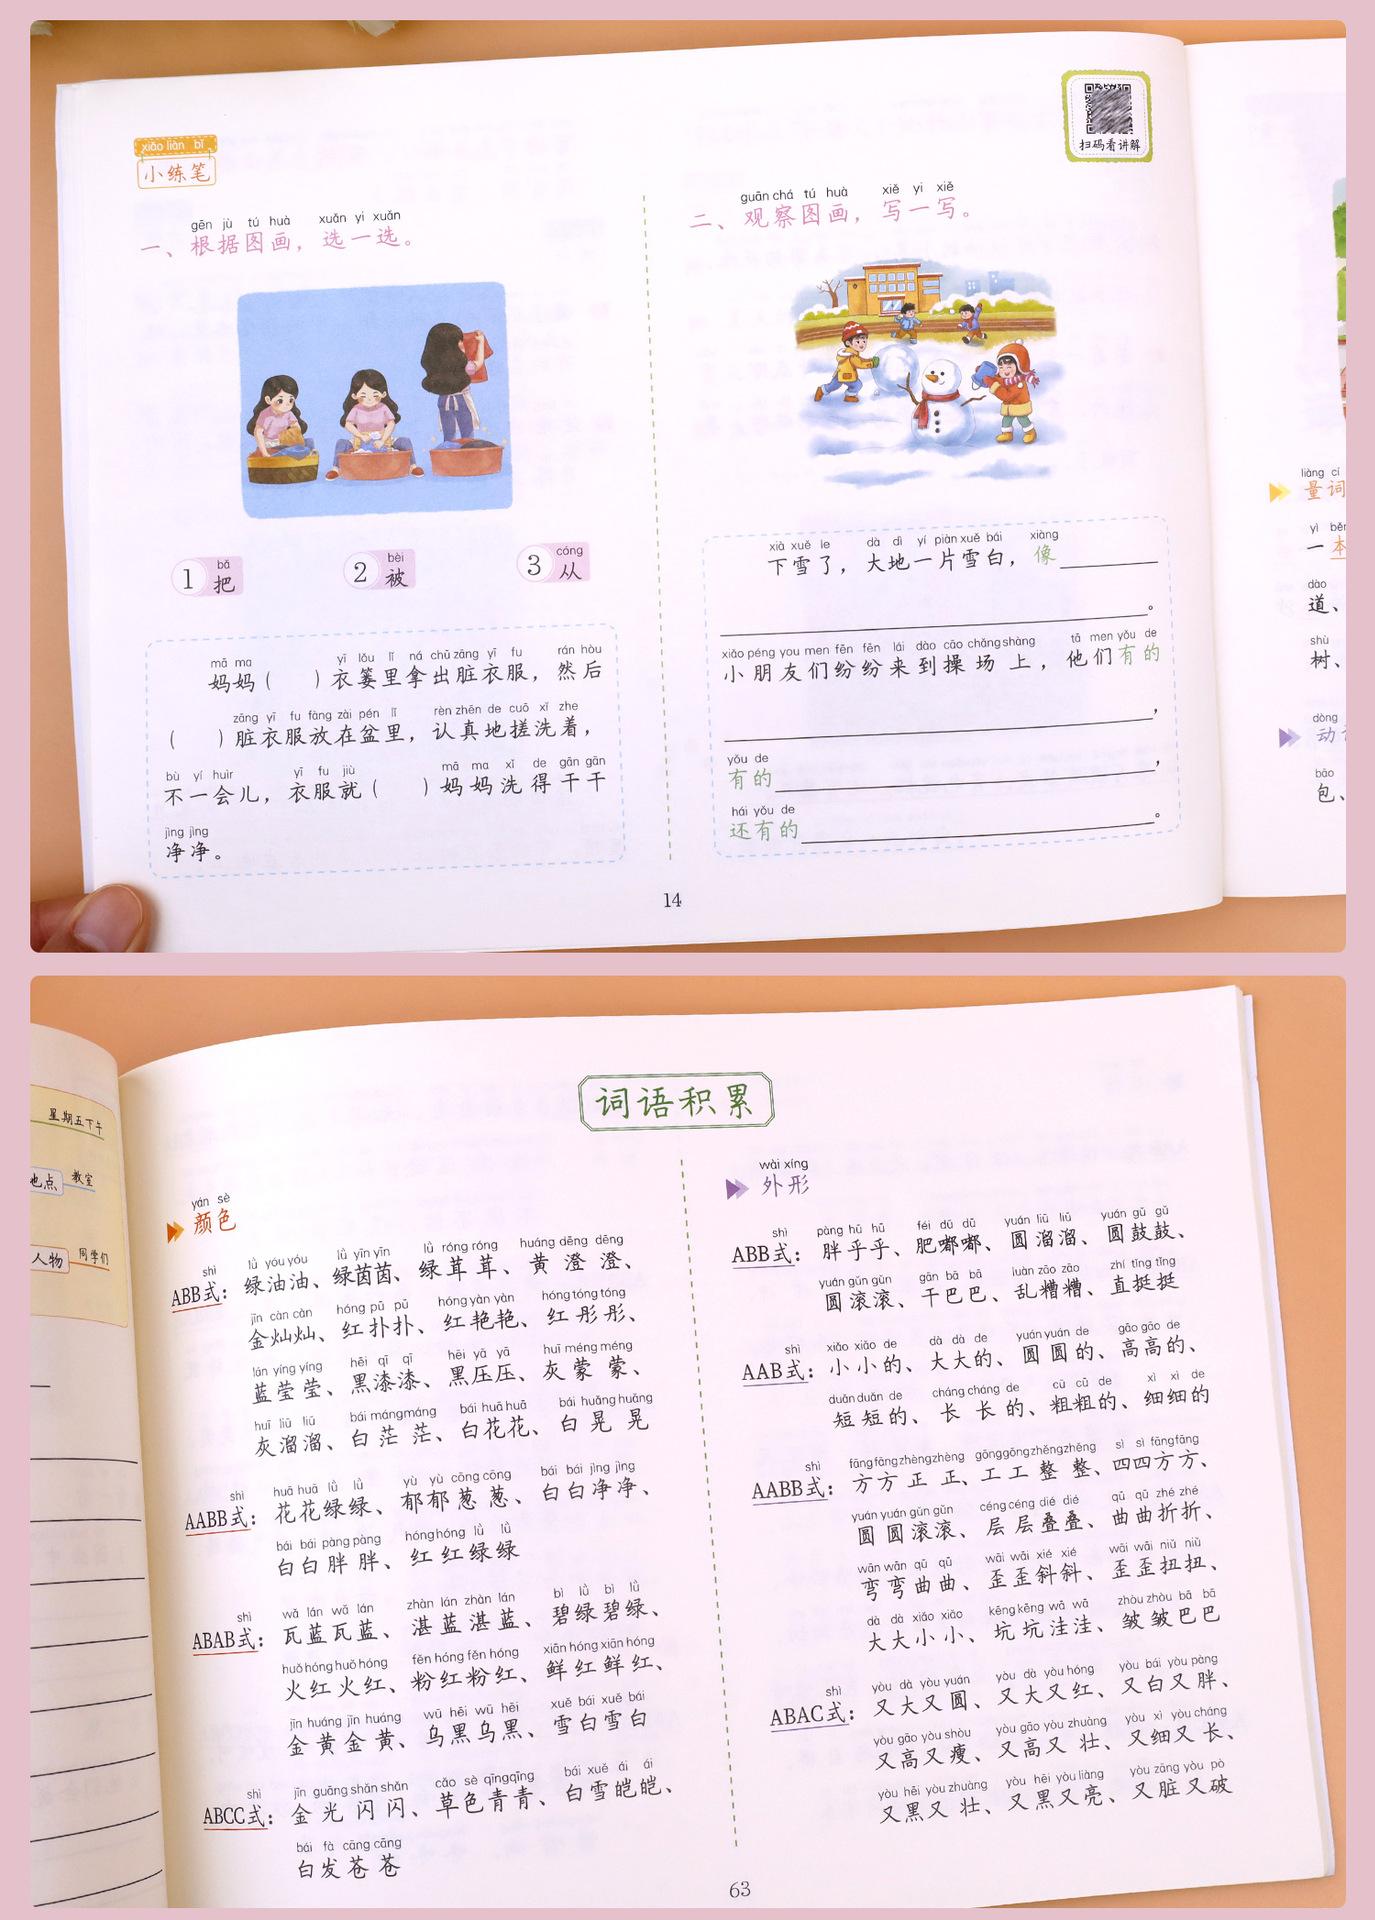 xiǎo liàn bǐ
小练笔
gēn jù tú huà xuǎn yi xuǎn
一、根据图画，选一选。
1 bǎ 把
2 bèi 被
3 cóng 从
mā ma yī lǒu lǐ ná chū zāng yī fu rán hòu
妈妈（ ）衣篓里拿出脏衣服，然后
zāng yī fu fàng zài pén lǐ rèn zhēn de cuō xǐ zhe
（ ）脏衣服放在盆里，认真地搓洗着，
bù yí huìr yī fu jiù mā ma xǐ de gān gān
不一会儿，衣服就（ ）妈妈洗得干干
jìng jìng
净净。
扫码看讲解
guān chá tú huà xiě yi xiě
二、观察图画，写一写。
xià xuě le dà dì yí piàn xuě bái xiàng
下雪了，大地一片雪白，像
。
xiǎo péng you men fēn fēn lái dào cāo chǎng shàng tā men yǒu de
小朋友们纷纷来到操场上，他们有的
，
yǒu de
有的，
hái yǒu de
还有的。
14
liàng cí
量词
yì běn
一本
dào
道、
shù
树、
dòng
动
bāo
包、
星期五下午
地点 教室
人物 同学们
词语积累
yán sè
颜色
shì lǜ yóu yóu lǜ yīn yīn lǜ róng róng huáng dēng dēng
ABB式：绿油油、绿茵茵、绿茸茸、黄澄澄、
jīn càn càn hóng pū pū hóng yàn yàn hóng tóng tóng
金灿灿、红扑扑、红艳艳、红彤彤、
lán yíng yíng hēi qī qī hēi yā yā huī méng méng
蓝莹莹、黑漆漆、黑压压、灰蒙蒙、
huī liū liū bái máng máng bái huā huā bái huǎng huǎng
灰溜溜、白茫茫、白花花、白晃晃
shì huā huā lǜ lǜ yù yù cōng cōng bái bái jìng jìng
AABB式：花花绿绿、郁郁葱葱、白白净净、
bái bái pàng pàng hóng hóng lǜ lǜ
白白胖胖、红红绿绿
shì wǎ lán wǎ lán zhàn lán zhàn lán bì lǜ bì lǜ
ABAB式：瓦蓝瓦蓝、湛蓝湛蓝、碧绿碧绿、
huǒ hóng huǒ hóng fěn hóng fěn hóng xiān hóng xiān hóng
火红火红、粉红粉红、鲜红鲜红、
jīn huáng jīn huáng wū hēi wū hēi xuě bái xuě bái
金黄金黄、乌黑乌黑、雪白雪白
shì jīn guāng shǎn shǎn cǎo sè qīng qīng bái xuě ái ái
ABCC式：金光闪闪、草色青青、白雪皑皑、
bái fà cāng cāng
白发苍苍
wài xíng
外形
shì pàng hū hū féi dū dū yuán liū liū yuán gǔ gǔ
ABB式：胖乎乎、肥嘟嘟、圆溜溜、圆鼓鼓、
yuán gǔn gǔn gān bā bā luàn zāo zāo zhí tǐng tǐng
圆滚滚、干巴巴、乱糟糟、直挺挺
shì xiǎo xiǎo de dà dà de yuán yuán de gāo gāo de
AAB式：小小的、大大的、圆圆的、高高的、
duǎn duǎn de cháng cháng de cū cū de xì xì de
短短的、长长的、粗粗的、细细的
shì fāng fāng zhèng zhèng gōng gōng zhěng zhěng sì sì fāng fāng
AABB式：方方正正、工工整整、四四方方、
yuán yuán gǔn gǔn céng céng dié dié qū qū zhé zhé
圆圆滚滚、层层叠叠、曲曲折折、
wān wān qū qū wāi wāi xié xié wāi wāi niǔ niǔ
弯弯曲曲、歪歪斜斜、歪歪扭扭、
dà dà xiǎo xiǎo kēng kēng wā wā zhòu zhòu bā bā
大大小小、坑坑洼洼、皱皱巴巴
shì yòu dà yòu yuán yòu dà yòu hóng yòu bái yòu pàng
ABAC式：又大又圆、又大又红、又白又胖、
yòu gāo yòu shòu yòu gāo yòu zhuàng yòu xì yòu cháng
又高又瘦、又高又壮、又细又长、
yòu hēi yòu zhuàng yòu hēi yòu liàng yòu zāng yòu pò
又黑又壮、又黑又亮、又脏又破
63